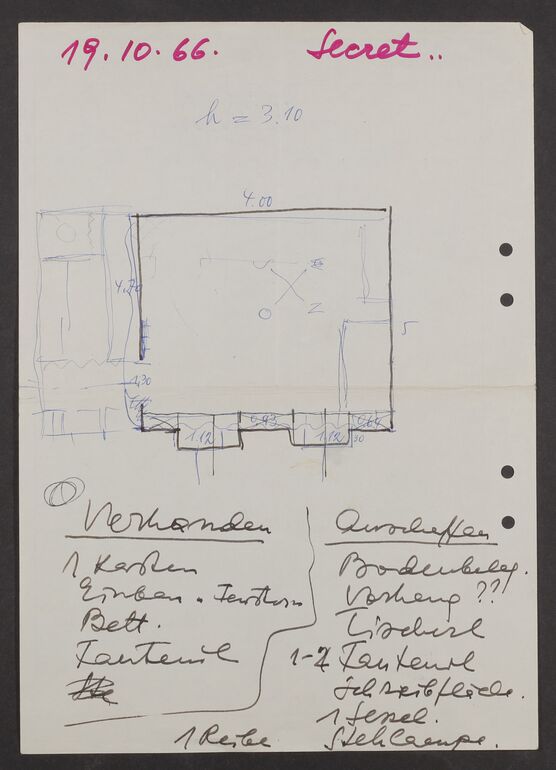 19.10.66.
Secret..
h = 3.10
4.00
4.70
5
1,30
0.93
0.64
1.12
1.12
30
Vorhanden
1 Kasten
Einbau
Bett.
Fauteuil
1 Reihe
Anschaffen
Bodenbelag.
Vorhang ??
Tischerl
1-2 Fauteuil
Schreibfläche.
1 Sessel.
Stehlampe.